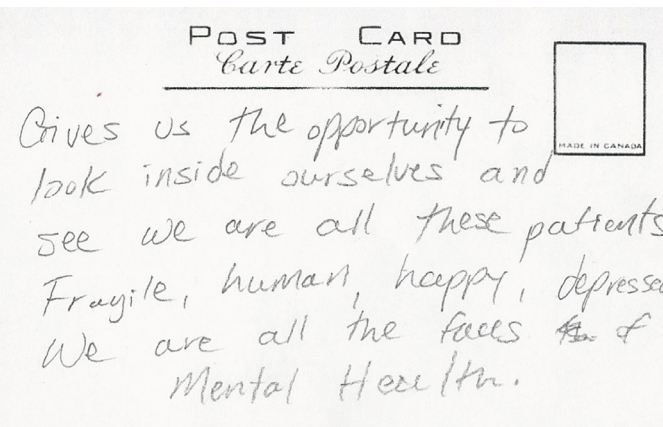 POST CARD
Carte Postale
MADE IN CANADA
Gives us the opportunity to
look inside ourselves and
see we are all these patients
Fragile, human, happy, depressed
We are all the faces of
Mental Health.